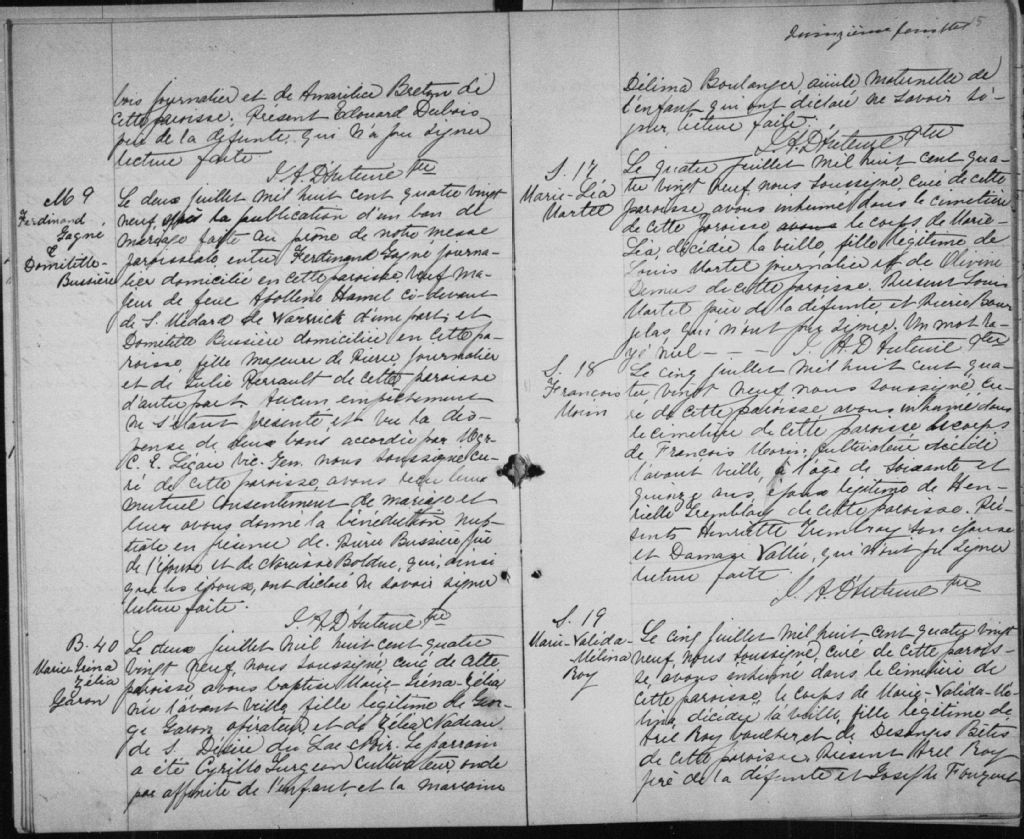 bois journalier et de Amarilice Breton de
cette paroisse. Présent Edouard Dubois
père de la défunte, qui n'a pu signer
lecture faite.
J. A. D'Auteuil Ptre
M 9
Ferdinand
Gagné
&
Domitille
Bussière
Le deux juillet mil huit cent quatre vingt
neuf, après la publication d'un ban de
mariage faite au prône de notre messe
paroissiale entre Ferdinand Gagné journa-
lier domicilié en cette paroisse veuf ma-
jeur de feue Apolline Hamel ci-devant
de S. Médard de Warwick d'une part, et
Domitille Bussière domiciliée en cette pa-
roisse, fille majeure de Pierre journalier
et de Julie Perrault de cette paroisse
d'autre part. Aucun empêchement
ne s'étant présenté et vu la dis-
pense de deux bans accordée par Mgr
C. E. Légaré Vic. Gen. nous soussigné cu-
ré de cette paroisse, avons reçu leur
mutuel consentement de mariage et
leur avons donné la bénédiction nup-
tiale en présence de Pierre Bussière père
de l'épouse et de Narcisse Bolduc, qui, ainsi
que les époux, ont déclaré ne savoir signer
lecture faite.
J. A. D'Auteuil Ptre
B. 40
Marie-Iréna
Zélia
Garon
Le deux juillet mil huit cent quatre
vingt neuf, nous soussigné, curé de cette
paroisse, avons baptisé Marie-Iréna-Zélia
née l'avant veille, fille légitime de Geor-
ge Garon, opérateur et de Zélia Nadeau
de S. Désiré du Lac Noir. Le parrain
a été Cyrille Turgeon cultivateur, oncle
par affinité de l'enfant et la marraine
Quinzième feuillet 15
Délima Boulanger, aïeule maternelle de
l'enfant qui ont déclaré ne savoir si-
gner, lecture faite.
J. A. D'Auteuil Ptre
S. 17
Marie-Léa
Martel
Le quatre juillet mil huit cent qua-
tre vingt neuf nous soussigné, curé de cette
paroisse, avons inhumé dans le cimetière
de cette paroisse avons le corps de Marie-
Léa, décédée la veille, fille légitime de
Louis Martel journalier et de Olivine
Demers de cette paroisse. Présent Louis
Martel père de la défunte, et Pierre
qui n'ont pu signer. Un mot ra-
yé nul - - - J. A. D'Auteuil Ptre
S. 18
François
Morin
Le cinq juillet mil huit cent qua-
tre vingt neuf nous soussigné, cu-
ré de cette paroisse, avons inhumé dans
le cimetière de cette paroisse le corps
de François Morin, cultivateur décédé
l'avant veille, à l'âge de soixante et
quinze ans, époux légitime de Hen-
riette Tremblay de cette paroisse. Pré-
sents Henriette Tremblay son épouse
et Damase Vallée, qui n'ont pu signer
lecture faite.
J. A. D'Auteuil Ptre
S. 19
Marie-Valida-
Mélina
Roy
Le cinq juillet mil huit cent quatre vingt
neuf, nous soussigné, curé de cette parois-
se, avons inhumé dans le cimetière de
cette paroisse, le corps de Marie-Valida-Mé-
lina, décédée la veille, fille légitime de
Ariel Roy et de Desanges Bétis
de cette paroisse. Présent Ariel Roy
père de la défunte et Joseph Fouquet